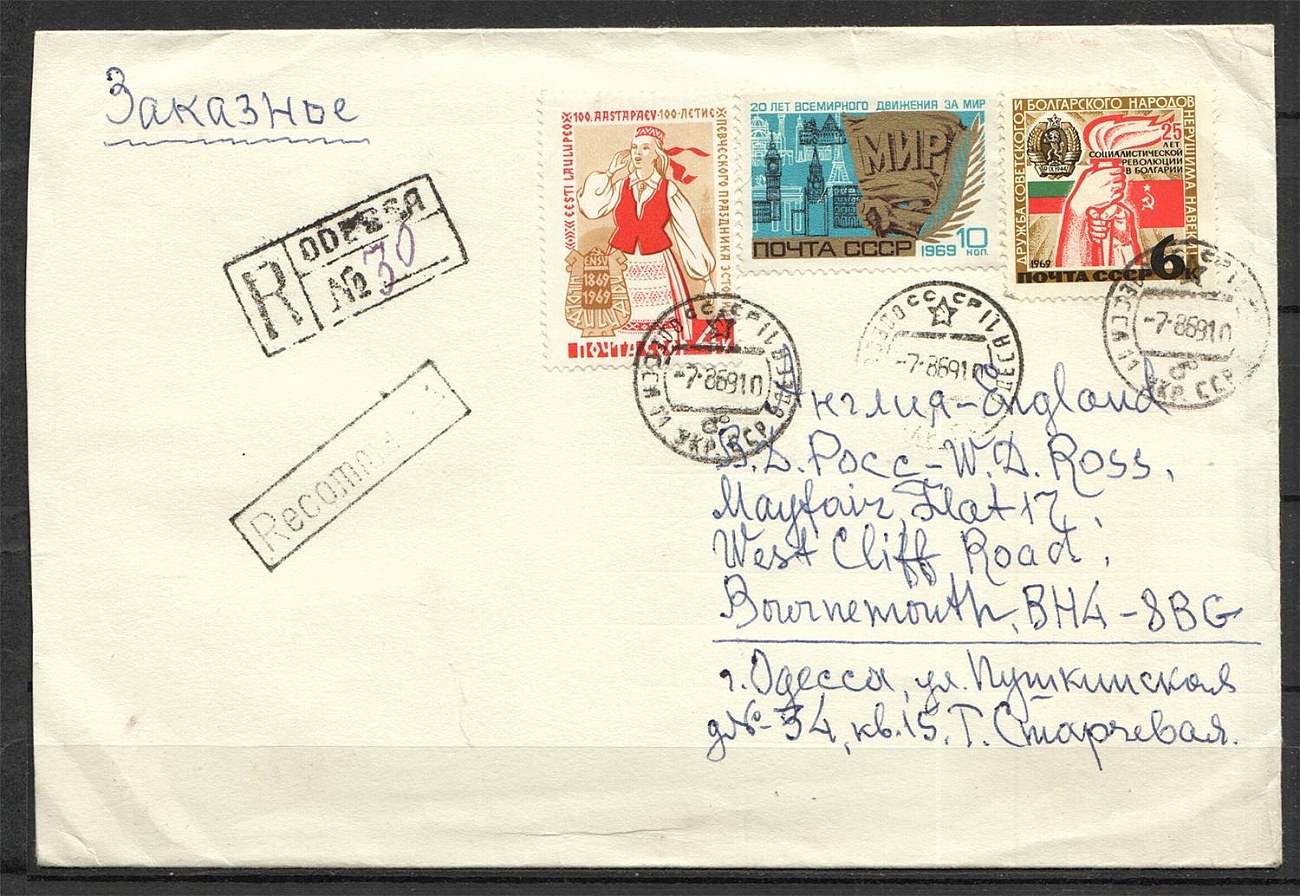 Заказное
R ОДЕССА
№ 30
Recom
XXX EESTI LAULUPEO 100. AASTAPÄEV · 100-ЛЕТИЕ
ПЕВЧЕСКОГО ПРАЗДНИКА
ENSV
1869
1969
ПОЧТА
20 ЛЕТ ВСЕМИРНОГО ДВИЖЕНИЯ ЗА МИР
МИР
ПОЧТА СССР 1969 10 КОП.
ДРУЖБА СОВЕТСКОГО И БОЛГАРСКОГО НАРОДОВ НЕРУШИМА НАВЕКИ
25
ЛЕТ
СОЦИАЛИСТИЧЕСКОЙ
РЕВОЛЮЦИИ
В БОЛГАРИИ
9 IX 1944
1969
ПОЧТА СССР 6 К
ОДЕССА 11 УКР. ССР
-7-86910
-7-86910
ОДЕССА 11 УКР. ССР
-7-86910
Англия-England
В.Д. Росс-W.D. Ross,
Mayfair, Flat 17,
West Cliff Road,
Bournemouth, BH4-8BG
г. Одесса, ул. Пушкинская
д№-34, кв.15, Т. Старчевая.